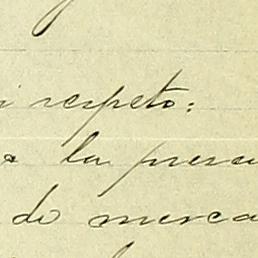 i respeto:
la presen
de merca